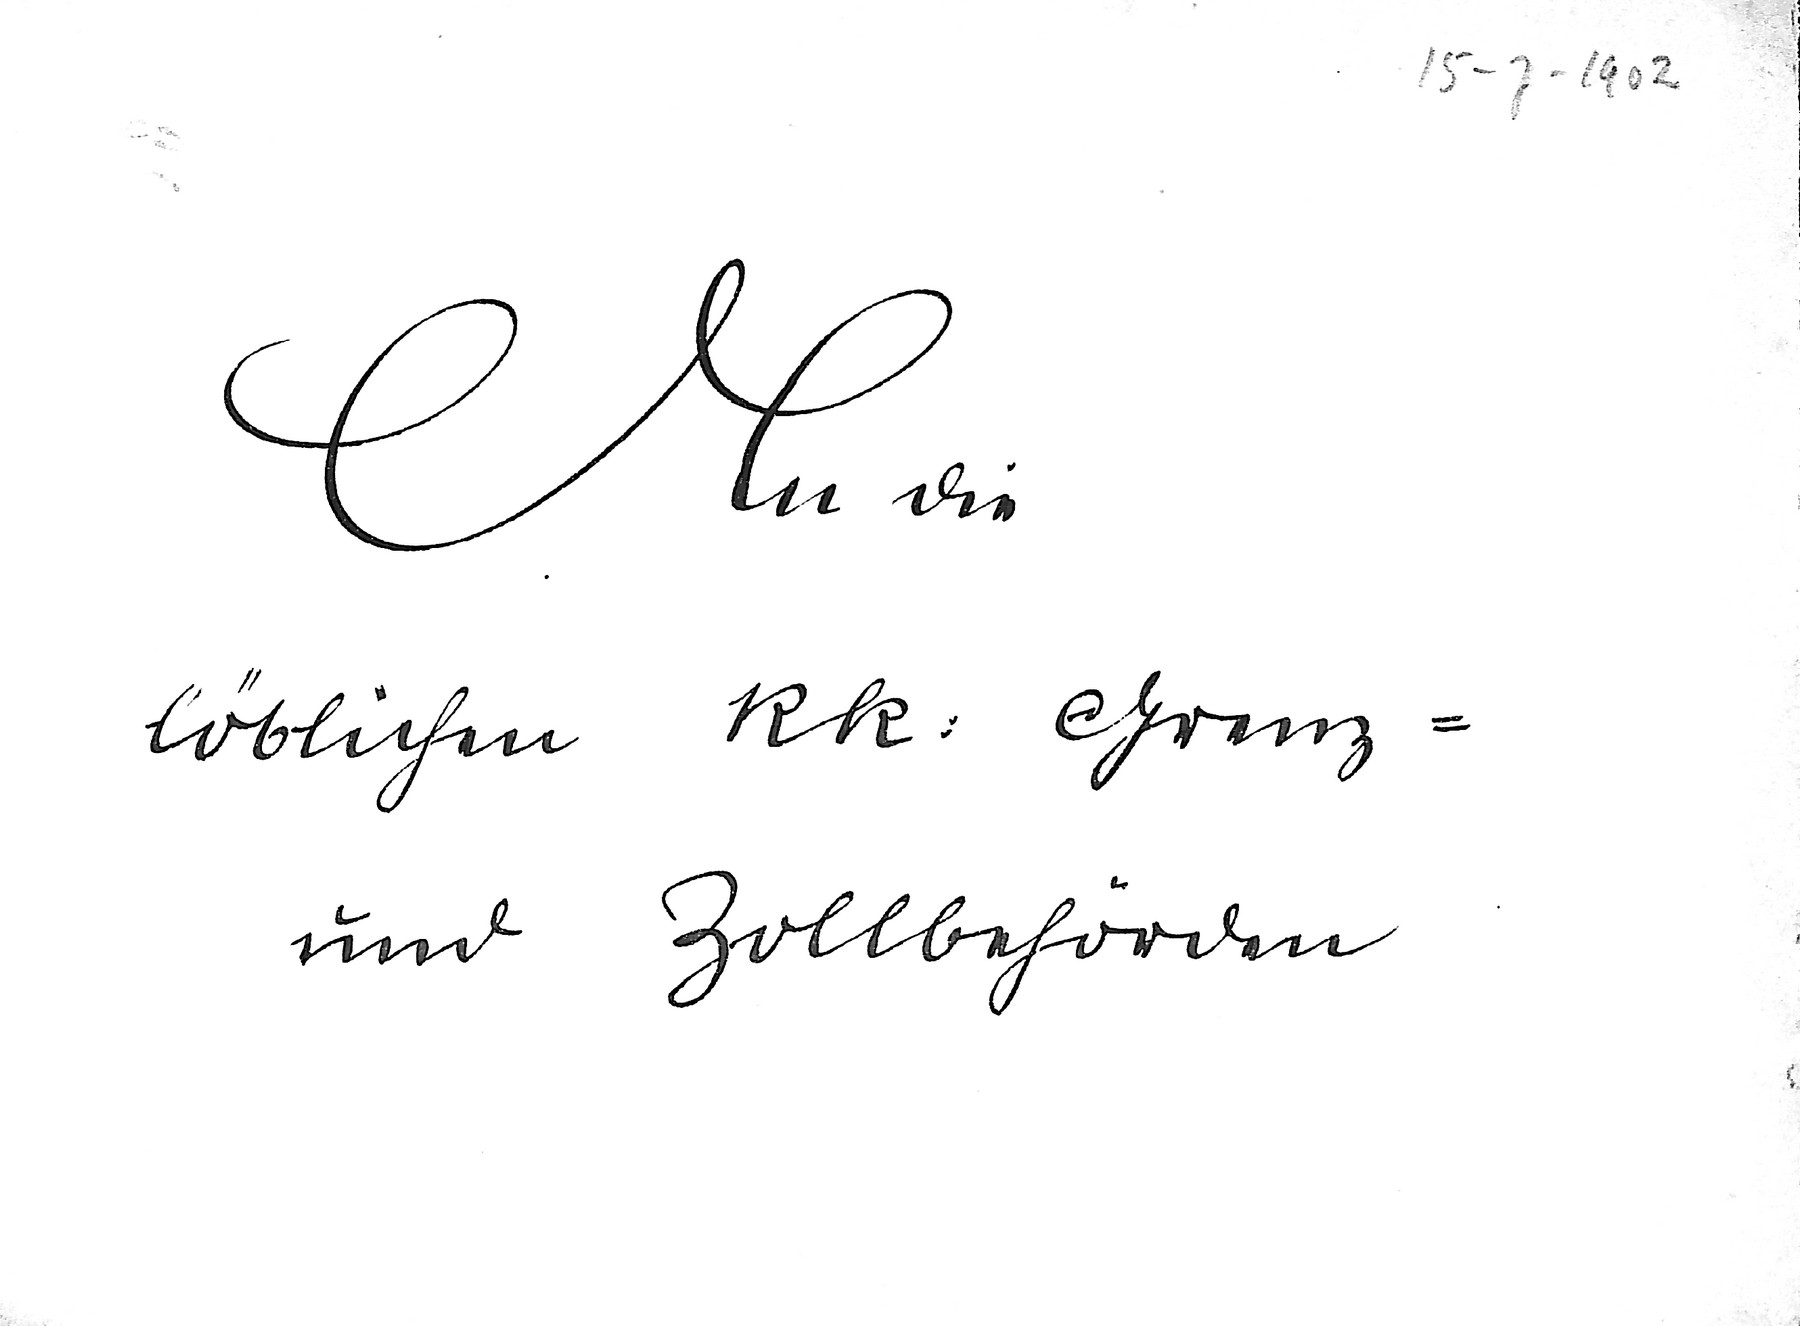 15-7-1902
An die
löblichen KK: Grenz=
und Zollbehörden